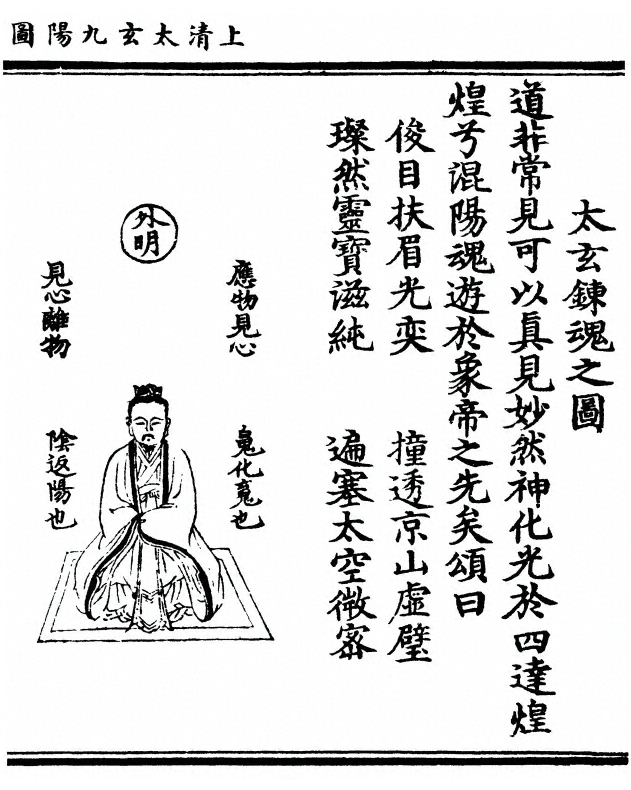 上清太玄九陽圖
太玄鍊魂之圖
道非常見可以眞見妙然神化光於四達煌
煌兮混陽魂遊於象帝之先矣頌曰
俊目扶眉光奕　撞透京山虛璧
璨然靈寶滋純　遍塞太空微密
外明
應物見心
化也
見心離物
陰返陽也